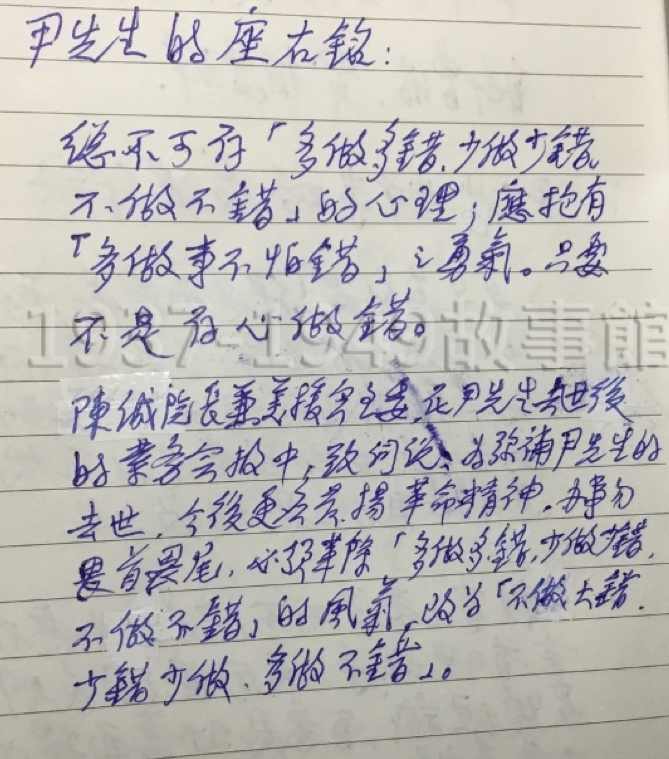 尹先生的座右銘：
總不可存「多做多錯、少做少錯、
不做不錯」的心理；應抱有
「多做事不怕錯」之勇氣。只要
不是存心做錯。
1937-1949故事館
陳誠院長兼美援會主委，在尹先生去世後
的業務会报中，致詞説、為弥補尹先生的
去世，今後更要發揚革命精神，办事勿
畏首畏尾，必須革除「多做多錯，少做少錯，
不做不錯」的風氣，改为「不做大錯，
少錯少做、多做不錯」。